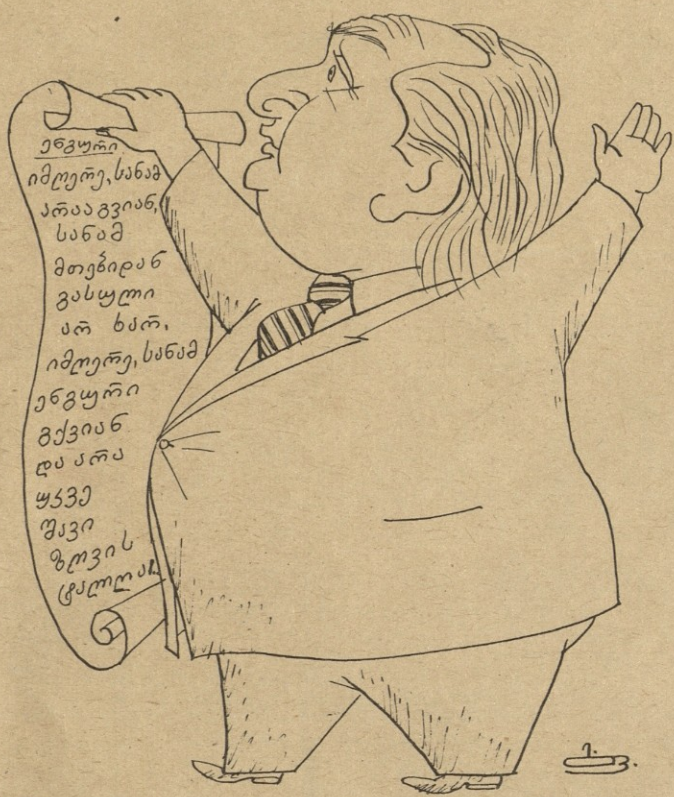 ენგური
იმღერე, სანამ
არააგვიან,
სანამ
მთებიდან
გასული
არ ხარ,
იმღერე, სანამ
ენგური
გქვიან
და არა
უკვე
შავი
ზღვის
ტალღა!..